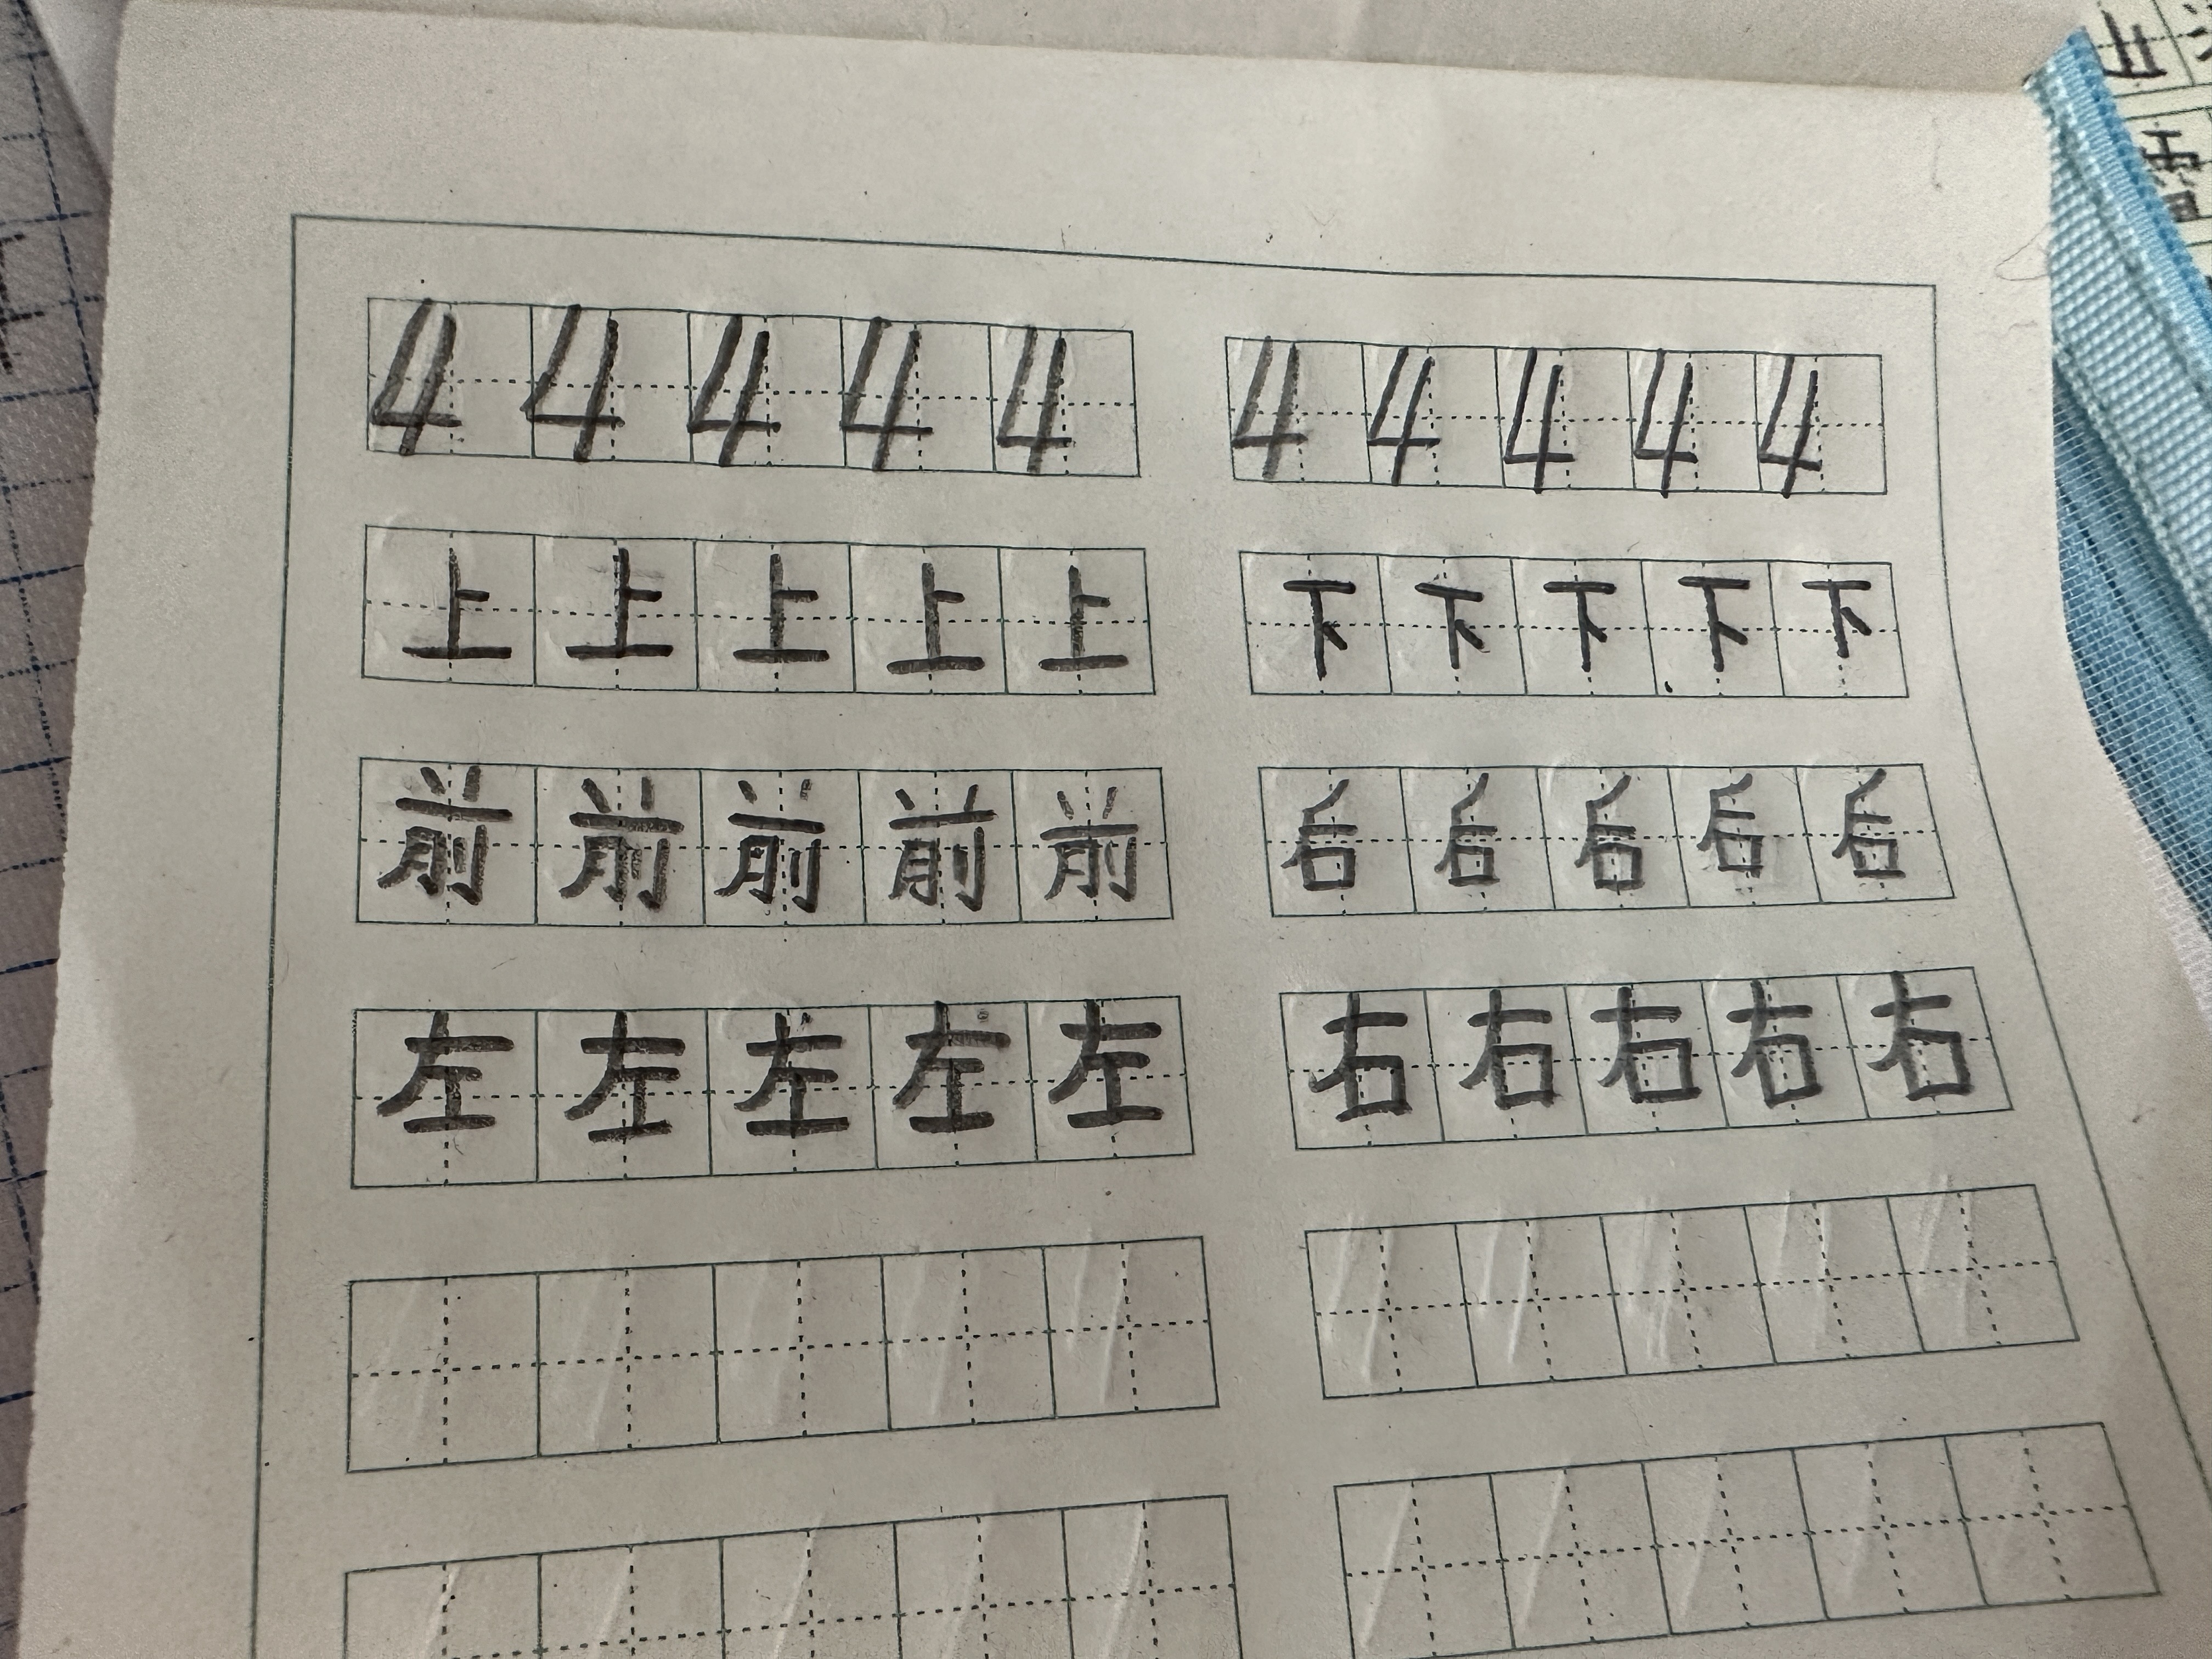 4 4 4 4 4 4 4 4 4 4
上 上 上 上 上 下 下 下 下 下
前 前 前 前 前 后 后 后 后 后
左 左 左 左 左 右 右 右 右 右